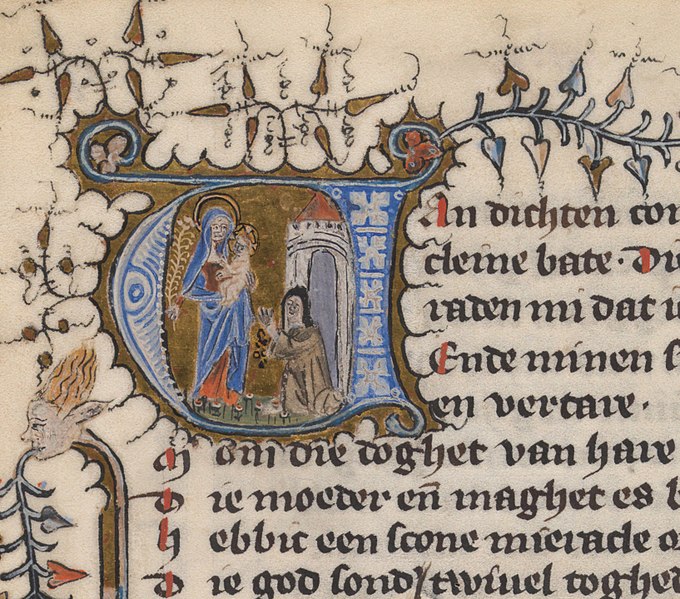 Van dichten
cleine bate. Die
raden mi dat ic
Ende minen
en vertare.
om die doghet van hare
Die moeder en̄ maghet es
hebbic een scone mieracle
Die god sond' twiuel toghed